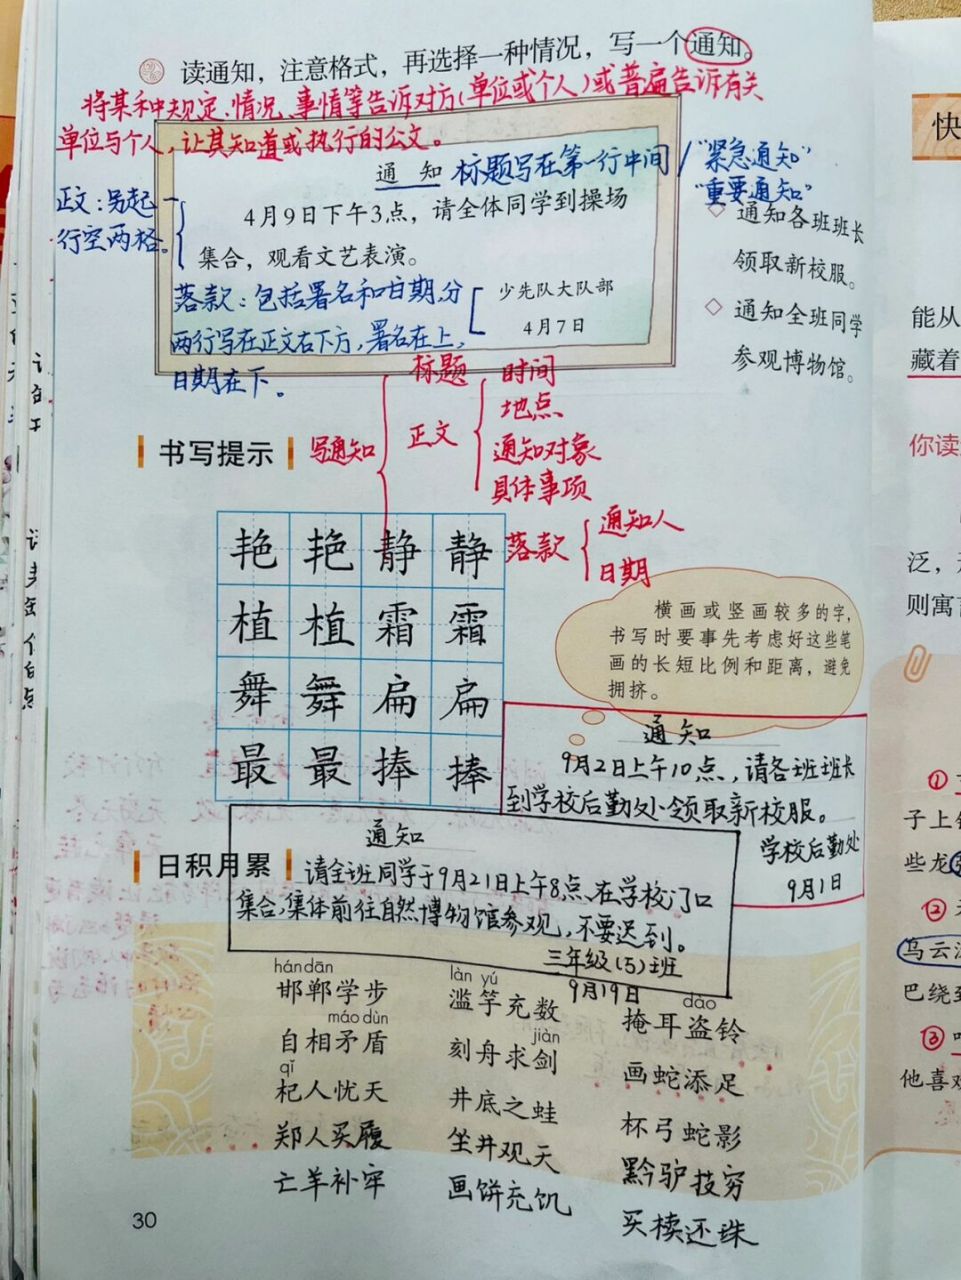 读通知，注意格式，再选择一种情况，写一个通知。
将某种规定、情况、事情等告诉对方(单位或个人)或普遍告诉有关
单位与个人，让其知道或执行的公文。
通 知 标题写在第一行中间 / "紧急通知"
"重要通知"
正文：另起一
行空两格。
4月9日下午3点，请全体同学到操场
集合，观看文艺表演。
落款：包括署名和日期，分
两行写在正文右下方，署名在上，
日期在下。
少先队大队部
4月7日
◇ 通知各班班长
领取新校服。
◇ 通知全班同学
参观博物馆。
书写提示
写通知
标题
正文
时间
地点
通知对象
具体事项
落款
通知人
日期
艳 艳 静 静
植 植 霜 霜
舞 舞 扁 扁
最 最 捧 捧
横画或竖画较多的字，
书写时要事先考虑好这些笔
画的长短比例和距离，避免
拥挤。
通知
9月2日上午10点，请各班班长
到学校后勤处领取新校服。
学校后勤处
9月1日
通知
请全班同学于9月21日上午8点，在学校门口
集合，集体前往自然博物馆参观，不要迟到。
三年级（5）班
9月19日
日积月累
hándān
邯郸学步
làn yú
滥竽充数
dào
掩耳盗铃
máo dùn
自相矛盾
jiàn
刻舟求剑
画蛇添足
qǐ
杞人忧天
井底之蛙
杯弓蛇影
郑人买履
坐井观天
黔驴技穷
亡羊补牢
画饼充饥
买椟还珠
30
快
能从
藏着
你读
泛，
则寓言
①
子上
些龙
②
乌云
巴绕到
③
他喜欢